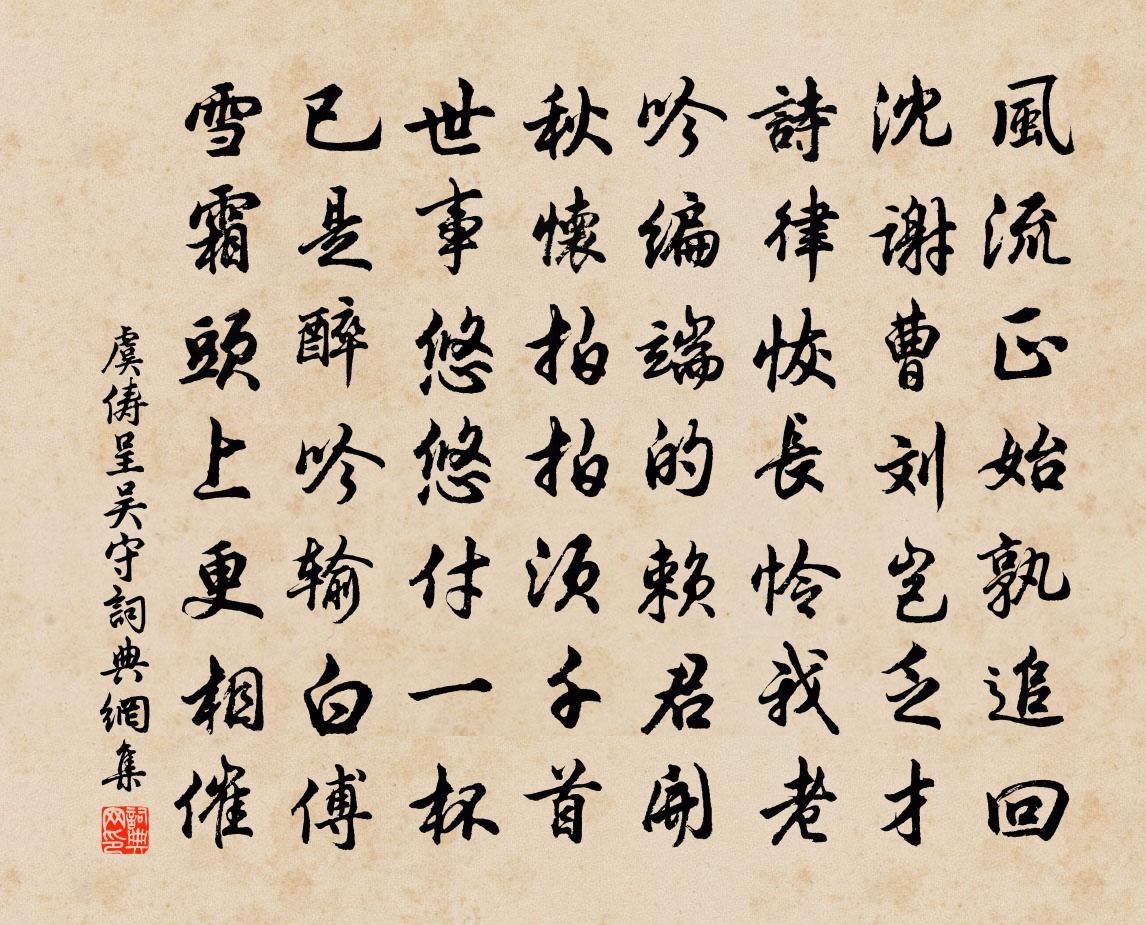 風流正始孰追回
沈謝曹刘豈乏才
詩律恢長怜我老
吟編端的賴君開
秋懷拍拍須千首
世事悠悠付一杯
已是醉吟输白傅
雪霜頭上更相催
虞儔呈吴守詞典網集
詞典网印